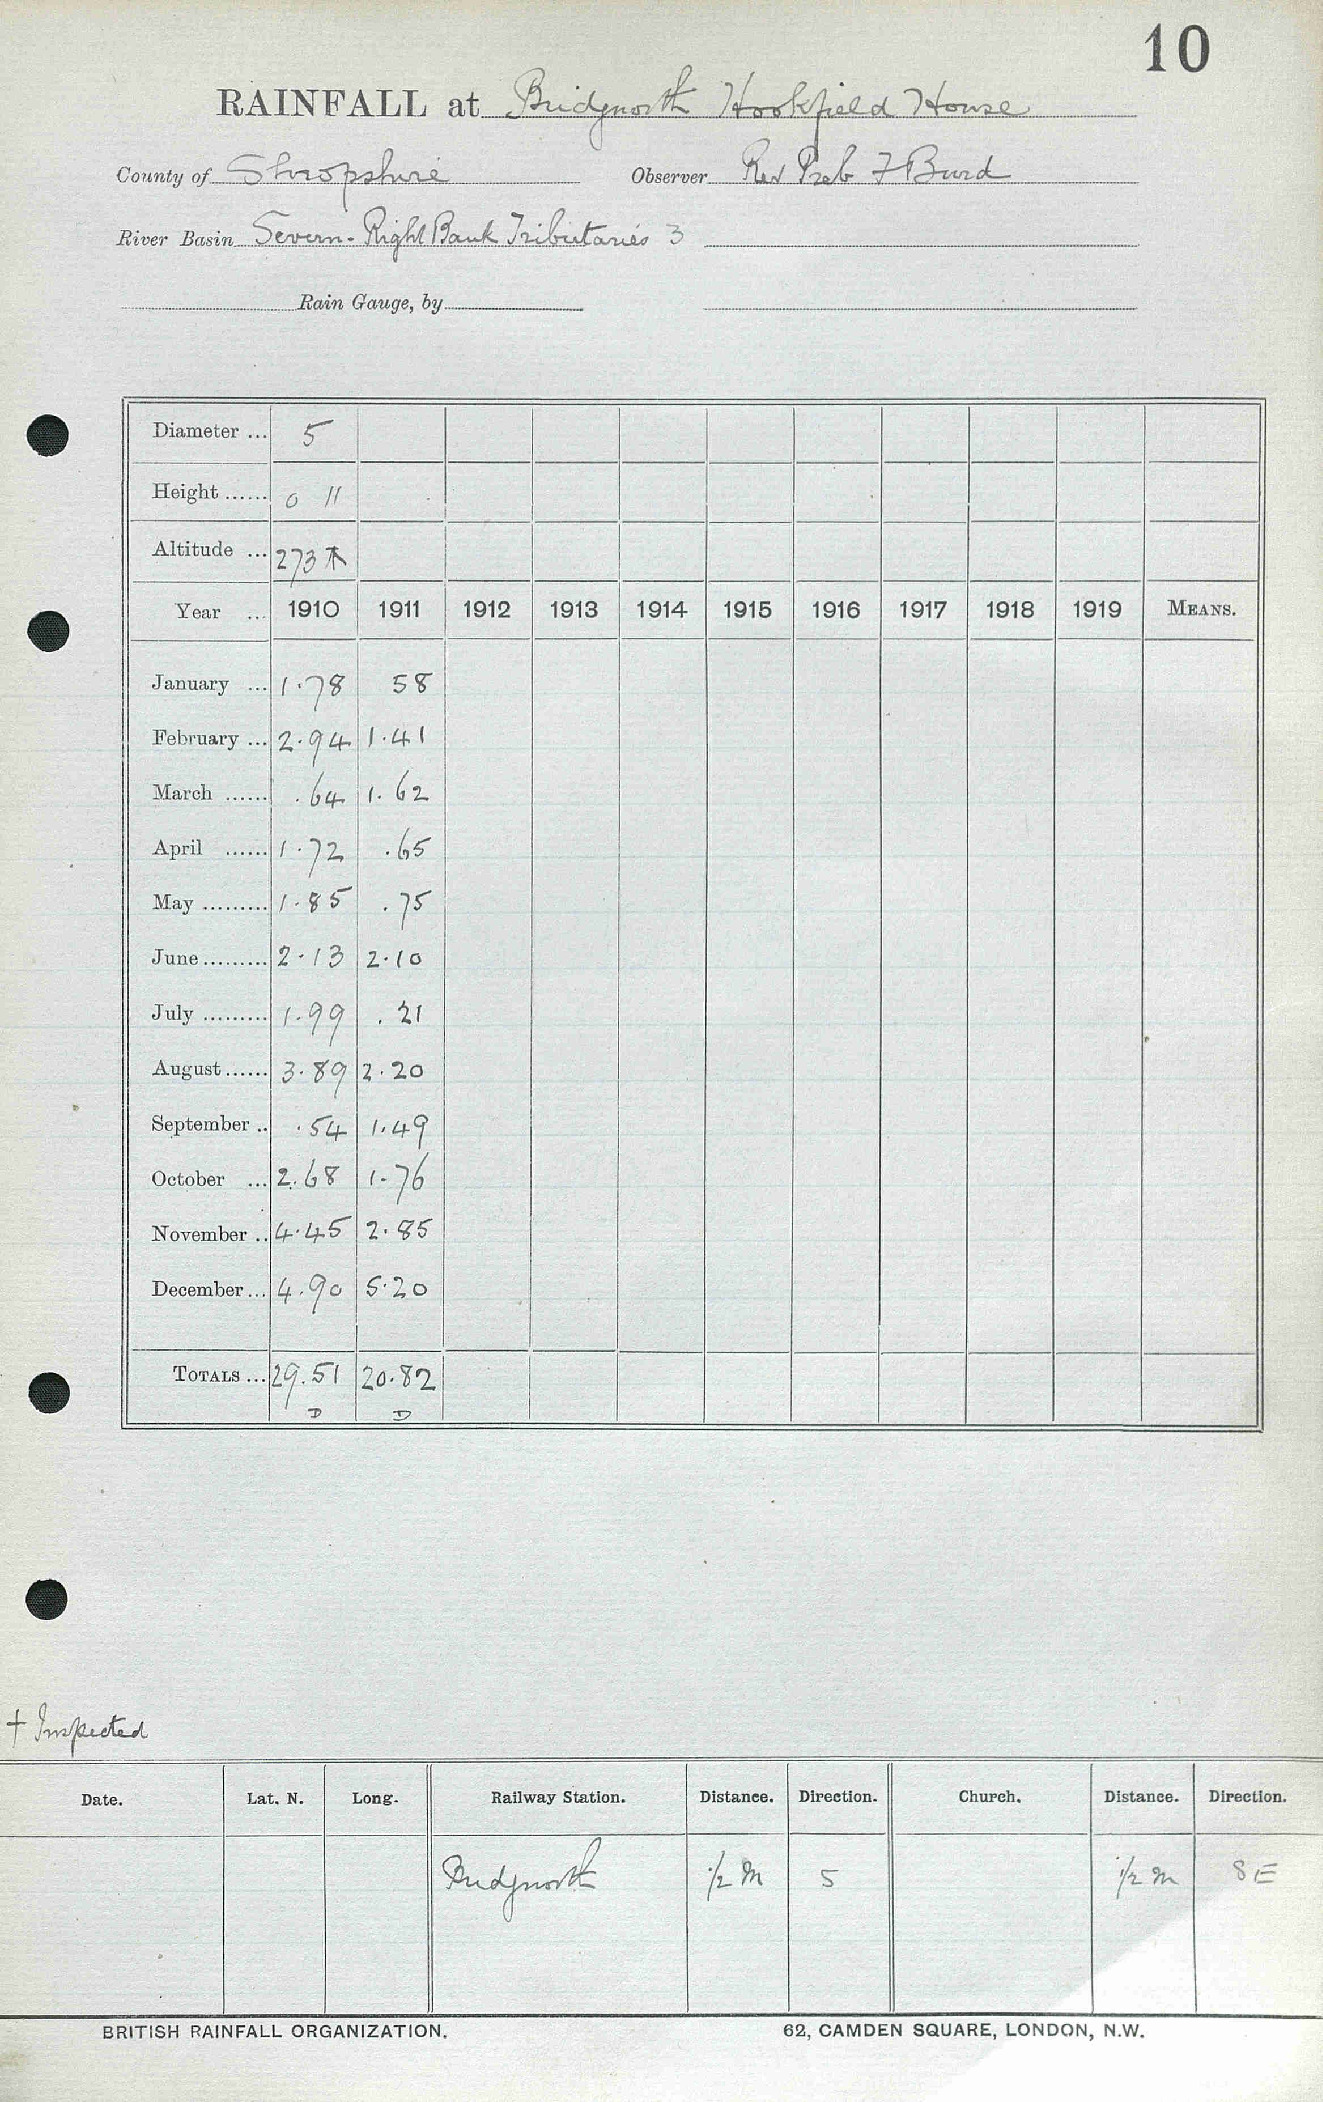 10
RAINFALL at Bridgnorth Hookfield House
County of Shropshire Observer Rev Preb F Burd
River Basin Severn - Right Bank Tributaries 3
Rain Gauge, by
Diameter ... 5
Height ...... 0 11
Altitude ... 273
Year ... 1910 1911 1912 1913 1914 1915 1916 1917 1918 1919 MEANS.
January ... 1.78 58
February ... 2.94 1.41
March ...... .64 1.62
April ...... 1.72 .65
May ......... 1.85 .75
June ......... 2.13 2.10
July ......... 1.99 .21
August ...... 3.89 2.20
September .. .54 1.49
October ... 2.68 1.76
November .. 4.45 2.85
December ... 4.90 5.20
TOTALS ... 29.51 20.82
D D
† Inspected
Date. Lat. N. Long. Railway Station. Distance. Direction. Church. Distance. Direction.
Bridgnorth 1/2 m S 1/2 m SE
BRITISH RAINFALL ORGANIZATION. 62, CAMDEN SQUARE, LONDON, N.W.